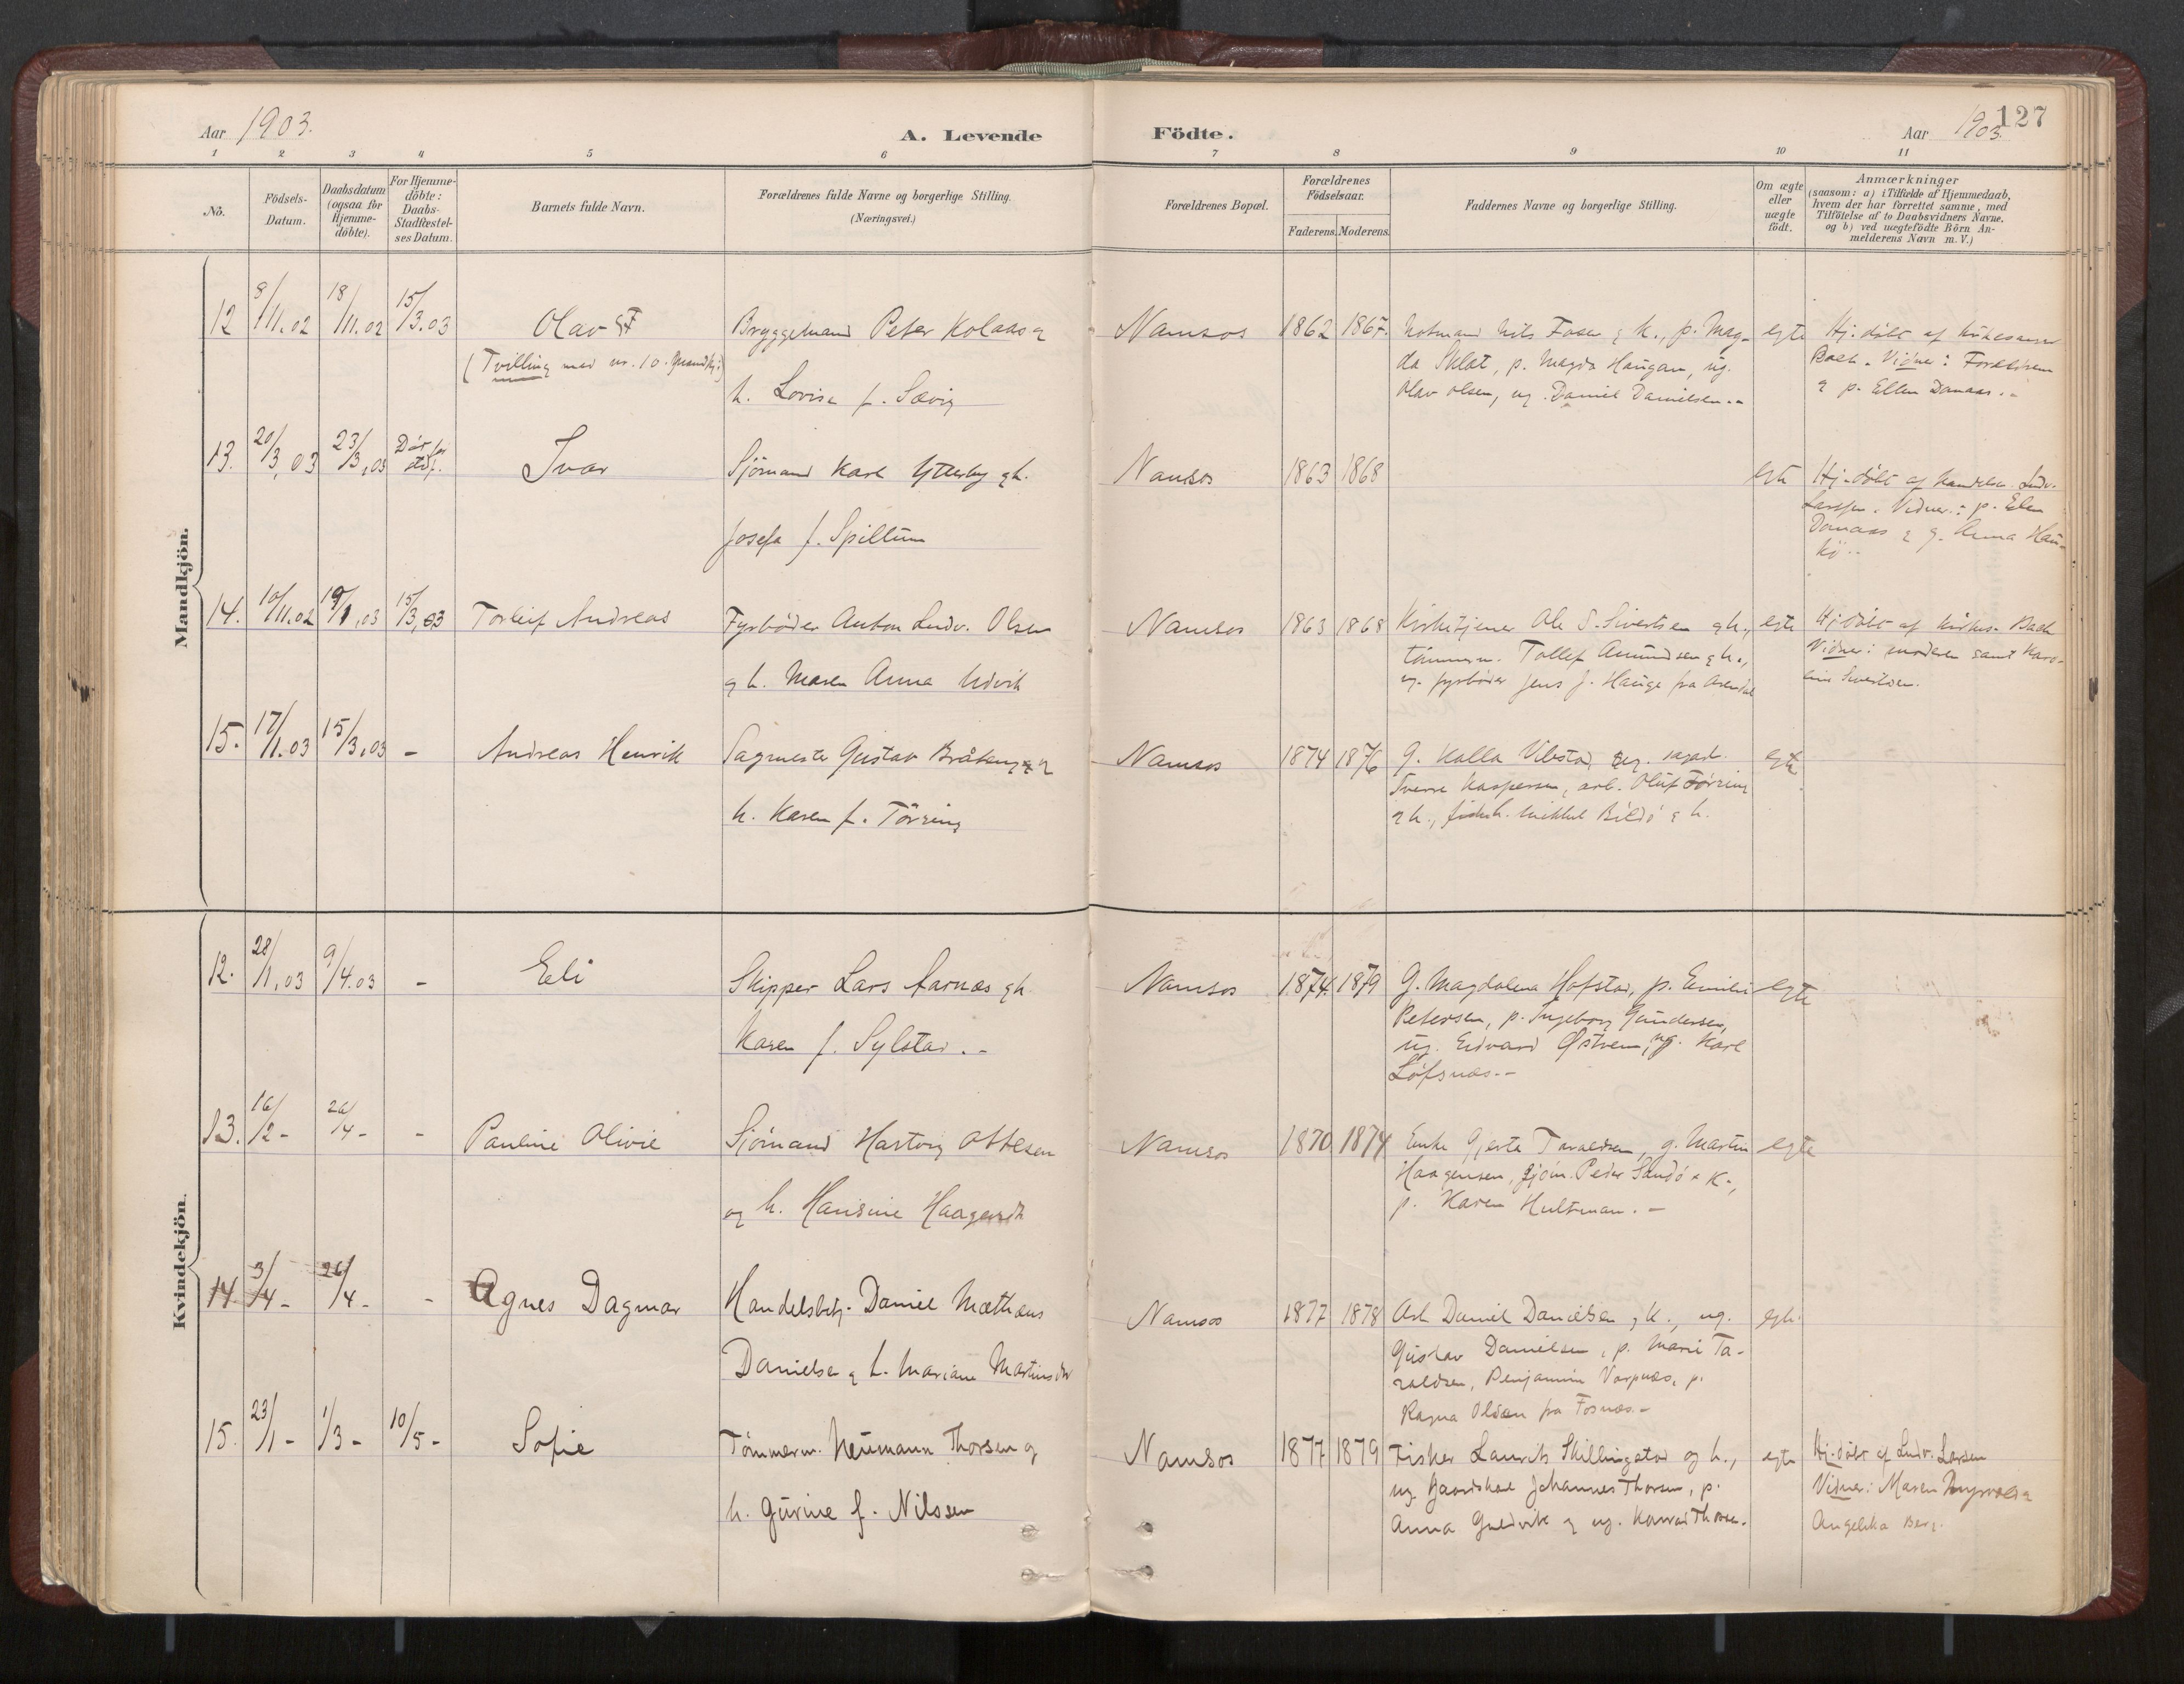 Aar 1903.
A. Levende Födte.
Aar 1903.
127
1 2 3 4 5 6 7 8 9 10 11
No.
Födsels-Datum.
Daabsdatum (ogsaa for Hjemme-döbte).
For Hjemme-döbte: Daabs-Stadfæstel-ses Datum.
Barnets fulde Navn.
Forældrenes fulde Navne og borgerlige Stilling.
(Næringsvei.)
Forældrenes Bopæl.
Forældrenes Födselsaar.
Faderens. Moderens.
Faddernes Navne og borgerlige Stilling.
Om ægte eller uægte födt.
Anmærkninger
(saasom: a) i Tilfælde af Hjemmedaab,
hvem der har forrettet samme, med
Tilföielse af to Daabsvidners Navne,
og b) ved uægtefödte Börn An-
melderens Navn m. V.)
Mandkjön.
12 8/11.02 18/11.02 15/3.03 Olav
(Tvilling med nr. 10. Mandkj.)
Bryggemand Peter Kolaas &
h. Lovise f. Sævig
Namsos 1862 1867.
Notmand Nils Foser & k., p. Mag-
da Sklet, p. Magda Haugan, ug.
Olav Olsen, ug. Daniel Danielsen.-
egte
Hj. döbt af
Bach. Vidner: Forældrene
& p. Ellen Danaas.-
13. 20/3,03 23/3,03 Död før stdf. Ivar
Sjömand Karl Ytterby & h.
Josefa f. Spillum
Namsos 1863 1868
egte
Hj-döbt af Ludv.
Larssen. Vidner: p. Elen
Danaas & g. Anna Hau-
kö.-
14. 10/11.02 19/1,03 15/3,03 Torleif Andreas
Fyrböder Anton Ludv. Olsen
& h. Maren Anna Udvik
Namsos 1863 1868
Kirketjener Ole S. Sivertsen & h.,
tömmerm. Tollef Amundsen & h.,
ug. fyrböder Jens J. Hauge fra Arendal
egte
Hj döbt af Kirkes. Bach
Vidner: moderen samt Karo-
line Sivertsen.
15. 17/1.03 15/3.03 - Andreas Henrik
Sagmester Gustav Bråten &
h. Karen f. Törring
Namsos 1874 1876
g. Kalla Vibstad, ug. sagarb.
Sverre Kaspersen, arb. Oluf Törring
& h., Mikkel Bildö & h.
egte
Kvindekjön.
12. 28/1,03 9/4.03 - Eli
Skipper Lars Aarnæs & h
Karen f. Sylstad.-
Namsos 1874. 1879
G. Magdalena Hofstad, p. Emilie
Petersen, p. Ingeborg Gundersen,
ug. Edvard Østrem, ug. Karl
Löfsnæs.-
egte
13. 16/2- 26/4- - Pauline Olivie
Sjömand Hartvig Ottesen
og h. Hansine Haagensdtr
Namsos 1870 1874
Enke Gjerta Taraldsen, g. Martin
Haagensen, sjöm. Peder Sandö & k.,
p. Karen Hultman.-
egte
14 3/4- 26/4- - Agnes Dagmar
Handelsbetj. Daniel Mathæus
Danielsen & h. Mariane Martinsdtr
Namsos 1877 1878
Arb. Daniel Danielsen & k., ug.
Gustav Danielsen, p. Marie Ta-
raldsen, Benjamin Varpnæs, p.
Ragna Olsen fra Fosnæs.-
egte.
15. 23/1- 1/3- 10/5- Sofie
Tömmerm. Neumann Thorsen og
h. Gurine f. Nilssen
Namsos 1877 1879
Fisker Laurits Skillingstad og h.,
ug. Gaardskarl Johannes Thorsen, p.
Anna Guldvik & ug. Konrad Thorsen.
egte
Hj-döbt af Ludv. Larsen
Vidner: Maren Myrvold &
Angelika Berg.